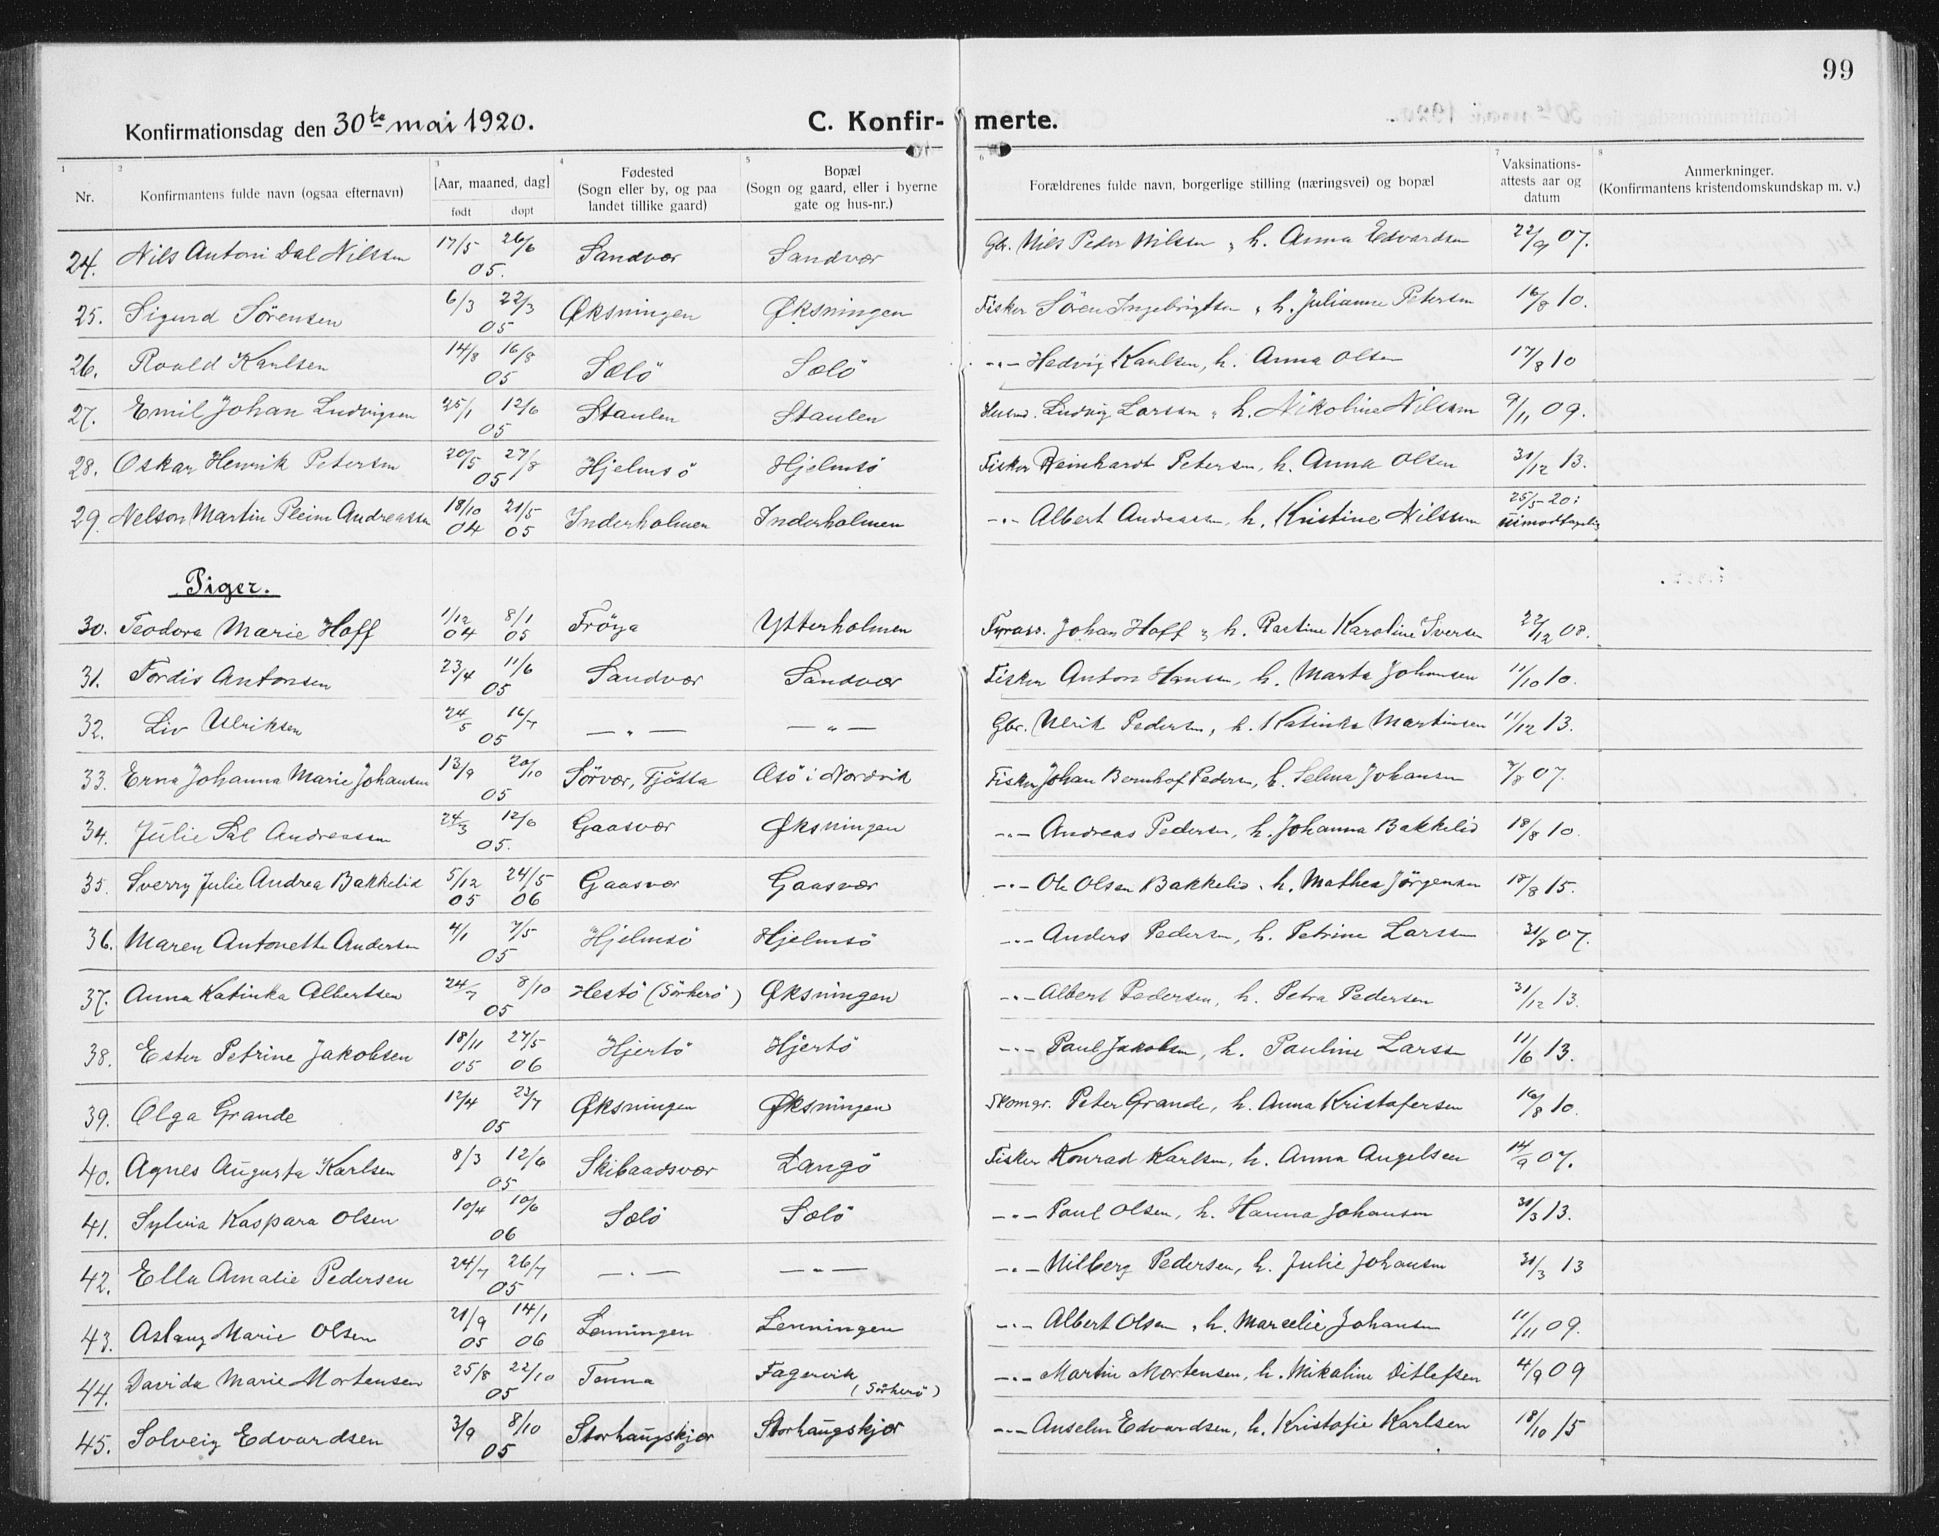 99
Konfirmationsdag den 30te mai 1920. C. Konfir- merte.
1 2 3 4 5 6 7 8
Nr. Konfirmantens fulde navn (ogsaa efternavn) [Aar, maaned, dag] født døpt Fødested (Sogn eller by, og paa landet tillike gaard) Bopæl (Sogn og gaard, eller i byerne gate og hus-nr.) Forældrenes fulde navn, borgerlige stilling (næringsvei) og bopæl Vaksinations-attests aar og datum Anmerkninger. (Konfirmantens kristendomskundskap m. v.)
24. Nils Antoni Dal Nilssen 17/5 26/6 05. Sandvær Sandvær Gbr. Niels Peder Nilsen, h. Anna Edvardsen 22/9 07.
25. Sigurd Sørensen 6/3 22/3 05 Øksningen Øksningen Fisker Sören Ingebrigtsen, h. Julianne Petersen 16/8 10.
26. Roald Karlsen 14/8 16/8 05 Sælö Sælö -"- Hedvig Karlsen, h. Anna Olsen 17/8 10
27. Emil Johan Ludvigsen 25/1 12/6 05 Staulen Staulen Husmd. Ludvig Larsen, h. Nikoline Nilssen 9/11 09.
28. Oskar Henrik Petersen 20/5 27/8 05 Hjelmsö Hjelmsö Fisker Reinhardt Petersen, h. Anna Olsen 31/12 13.
29. Nelson Martin Pleim Andreassen 18/10 04 21/5 05 Inderholmen Inderholmen -"- Albert Andreassen, h. Kristine Nilssen 25/5-20: uimodtagelig
Piger.
30. Teodora Marie Hoff 1/12 04 8/1 05 Fröya Ytterholmen Fyrass. Johan Hoff, h. Bartine Karoline Iversen 22/12 08.
31. Tordis Antonsen 23/4 11/6 05 Sandvær Sandvær Fisker Anton Hansen, h. Marta Johansen 11/10 10.
32. Liv Ulriksen 24/5 16/7 05 -"- -"- Gbr. Ulrik Pedersen, h. Katinka Martinsen 11/12 13.
33. Erna Johanna Marie Johansen 13/9 20/10 05 Sörvær, Tjötta Asö i Nordvik Fisker Johan Bernhof Pedersen, h. Selma Johansen 7/8 07.
34. Julie Sal Andreassen 24/3 12/6 05. Gaasvær Øksningen -"- Andreas Pedersen, h. Johanna Bakkelid 18/8 10.
35. Sverry Julie Andrea Bakkelid 5/12 05 24/5 06 Gaasvær Gaasvær -"- Ole Olsen Bakkelid, h. Mathea Jörgensen 18/8 15.
36. Maren Antonette Andersen 4/1 7/5 05 Hjelmsö Hjelmsö -"- Anders Pedersen, h. Petrine Larssen 31/8 07.
37. Anna Katinka Albertsen 24/7 8/10 05 Hestö (Sörherö) Øksningen -"- Albert Pedersen, h. Petra Pedersen 31/12 13.
38. Ester Petrine Jakobsen 18/11 05 27/5 06 Hjertö Hjertö -"- Paul Jakobsen, h. Pauline Larssen 11/6 13.
39. Olga Grande 12/4 23/7 05 Øksningen Øksningen Skomgr. Peter Grande, h. Anna Kristofersen 16/8 10.
40. Agnes Augusta Karlsen 8/3 12/6 05 Skibaadsvær Langö Fisker Konrad Karlsen, h. Anna Angelsen 14/9 07.
41. Sylvia Kaspara Olsen 10/4 10/6 06 Sælö Sælö -"- Paul Olsen, h. Hanna Johansen 31/3 13.
42. Ella Amalie Pedersen 24/7 26/7 05 -"- -"- -"- Milberg Pedersen, h. Julie Johansen 31/3 13
43. Aslaug Marie Olsen 21/9 05 14/1 06 Lenningen Lenningen -"- Albert Olsen, h. Marselie Johansen 11/11 09.
44. Davida Marie Mortensen 25/8 22/10 05 Tenna Fagervik (Sörherö) -"- Martin Mortensen, h. Mikaline Ditlefsen 4/9 09
45. Solveig Edvardsen 3/9 8/10 05 Storhaugskjær Storhaugskjær -"- Anselm Edvardsen, h. Kristofie Karlsen 18/10 15